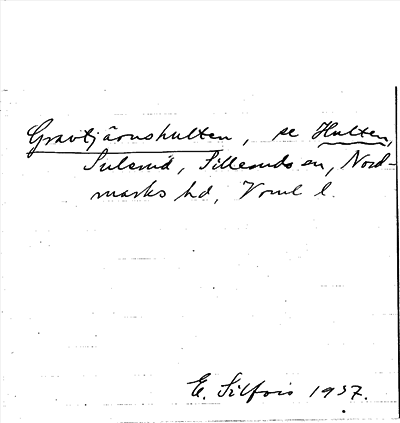 Gravtjärnshulten, se Hulten,
Sulsrud, Silleruds sn, Nord-
marks hd, Vrml l.
E. Silfvis 1937.